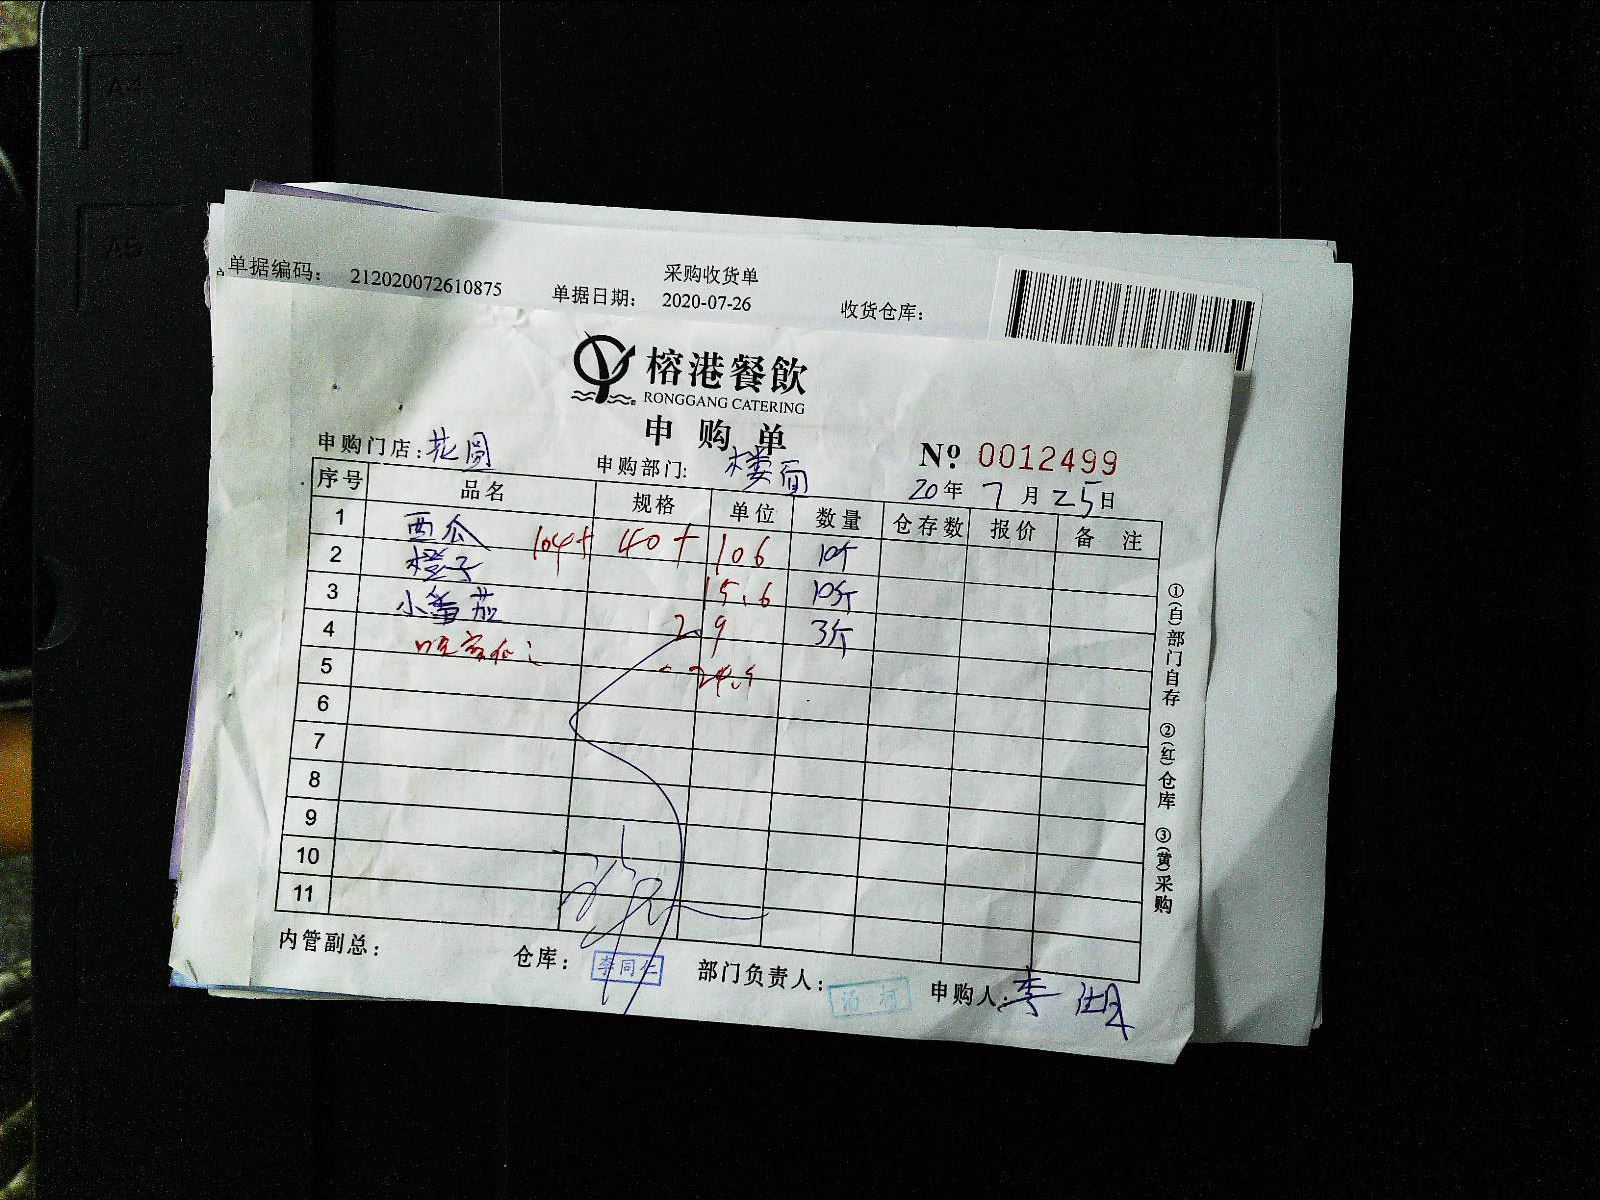 采购收货单
单据编码： 212020072610875 单据日期： 2020-07-26 收货仓库：
榕港餐飲
RONGGANG CATERING
申购单
申购门店：花园 申购部门：楼面 Nº 0012499
20年7月25日
序号 品名 规格 单位 数量 仓存数 报价 备注
1 西瓜 104+ 40+ 106 10斤
2 橙子 15.6 10斤
3 小番茄 2.9 3斤
4
5
6
7
8
9
10
11
①(白)部门自存 ②(红)仓库 ③(黄)采购
内管副总： 仓库：李同仁 部门负责人： 申购人：李
A4
A5